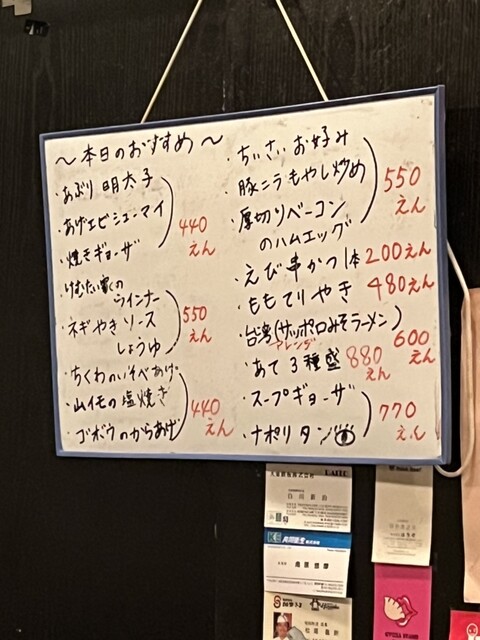 〜本日のおすすめ〜
・あぶり明太子
・あげエビシューマイ
・焼きギョーザ
440
えん
ウインナー
・ネギやきソース
しょうゆ
550
えん
・ちくわのいそべあげ
・山イモの塩焼き
・ゴボウのからあげ
440
えん
・ちいさいお好み
・豚ニラもやし炒め
・厚切りベーコン
のハムエッグ
550
えん
・えび串かつ1本 200えん
・ももてりやき 480えん
・台湾(サッポロみそラーメン)
アレンジ
600
えん
・あて3種盛 880
えん
・スープギョーザ
・ナポリタン
770
えん